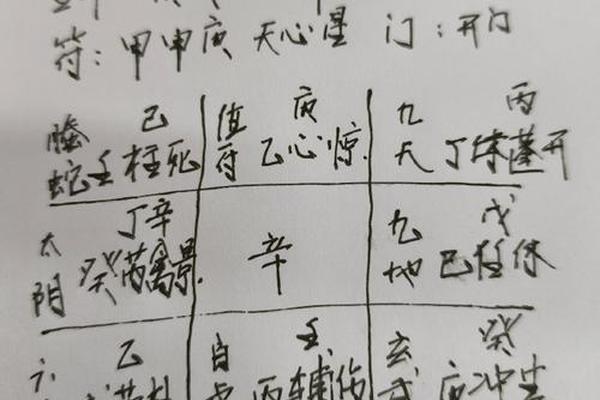 符：甲申庚 天心星 门：开门
螣蛇 己 壬 柱 死
值符 庚 乙 心 惊
九天 丙 丁 蓬 开
太阴 丁辛 癸 芮 景
辛
九地 戊 己 任 休
六 乙
白 壬 丙 辅 伤
玄武 癸 庚 冲 生